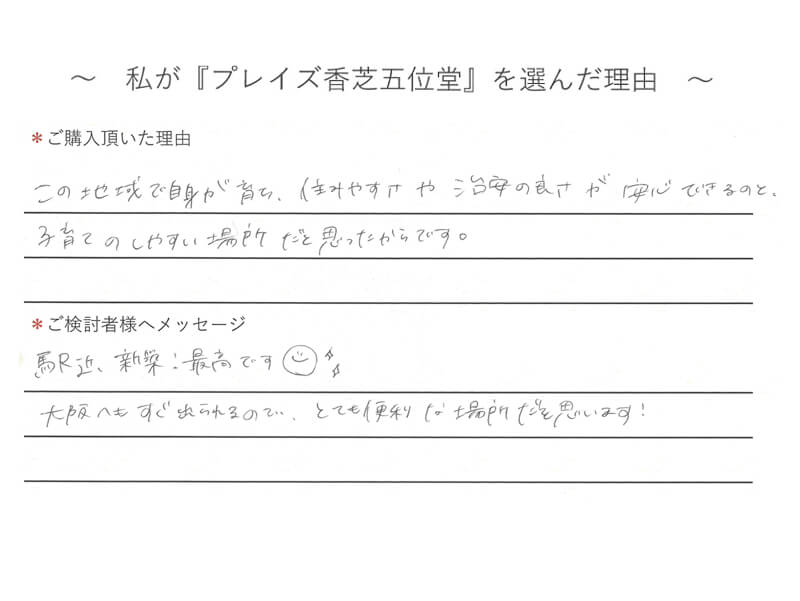 ～ 私が『プレイズ香芝五位堂』を選んだ理由 ～
*ご購入頂いた理由
この地域で自身が育ち、住みやすさや治安の良さが安心できるのと、
子育てのしやすい場所だと思ったからです。
*ご検討者様へメッセージ
駅近、新築！最高です
大阪へもすぐ出られるので、とても便利な場所だと思います！